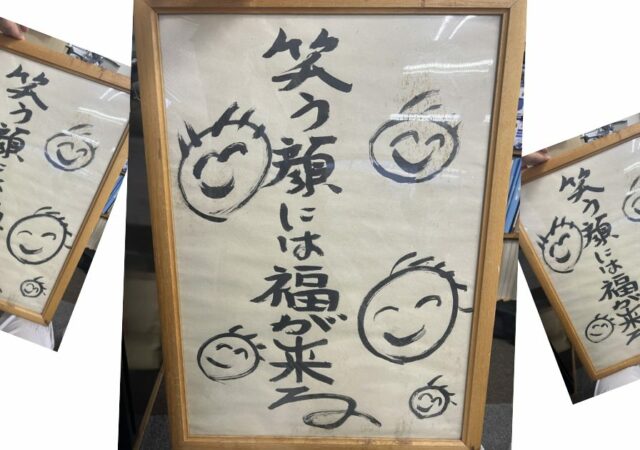 笑う顔には福が来る
笑う顔に
笑う顔には福が来る